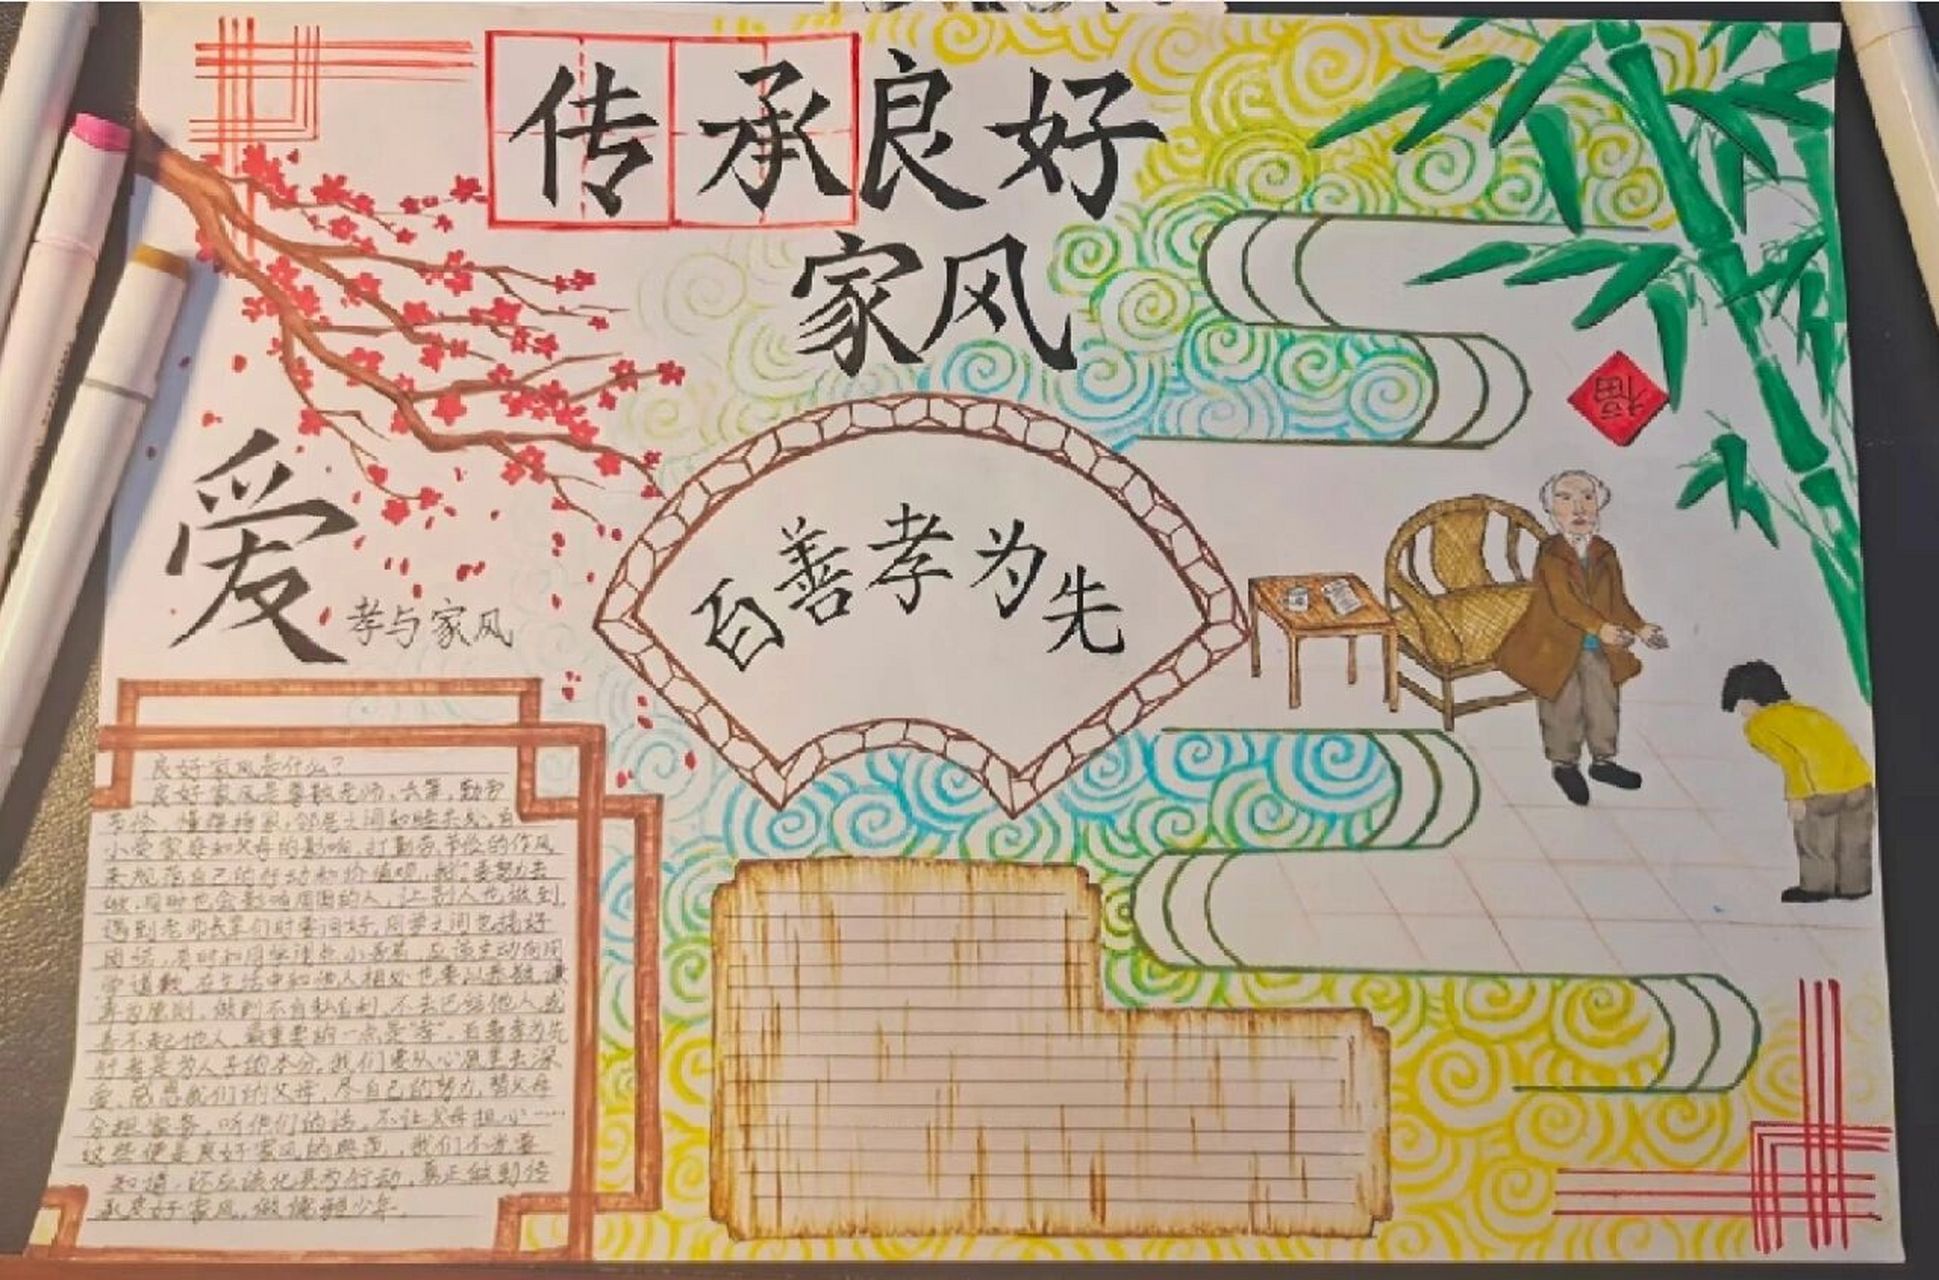 传承良好
家风
福
爱
孝与家风
百善孝为先
良好家风是什么？
良好家风是尊敬老师、长辈，勤劳
节俭、懂得持家，邻居之间和睦共处，自
小受家庭和父母的影响，以勤劳、节俭的作风
来规范自己的行动和价值观，我们要努力去
做，同时也会影响周围的人，让别人也做到，
遇到老师长辈们时要问好，同学之间也搞好
团结，有时和同学
学道歉，在生活中和他人相处也要以
为原则，做到不自私自利，不去巴结他人或
看不起他人，最重要的一点是“孝”，百善孝为先
行孝是为人子的本分，我们要从心底里去深
爱、感恩我们的父母，尽自己的努力，替父母
分担家务，听他们的话，不让父母担心……
这些便是良好家风的典范，我们不光要
知道，还应该化其为行动，真正做到传
承良好家风，做儒雅少年。